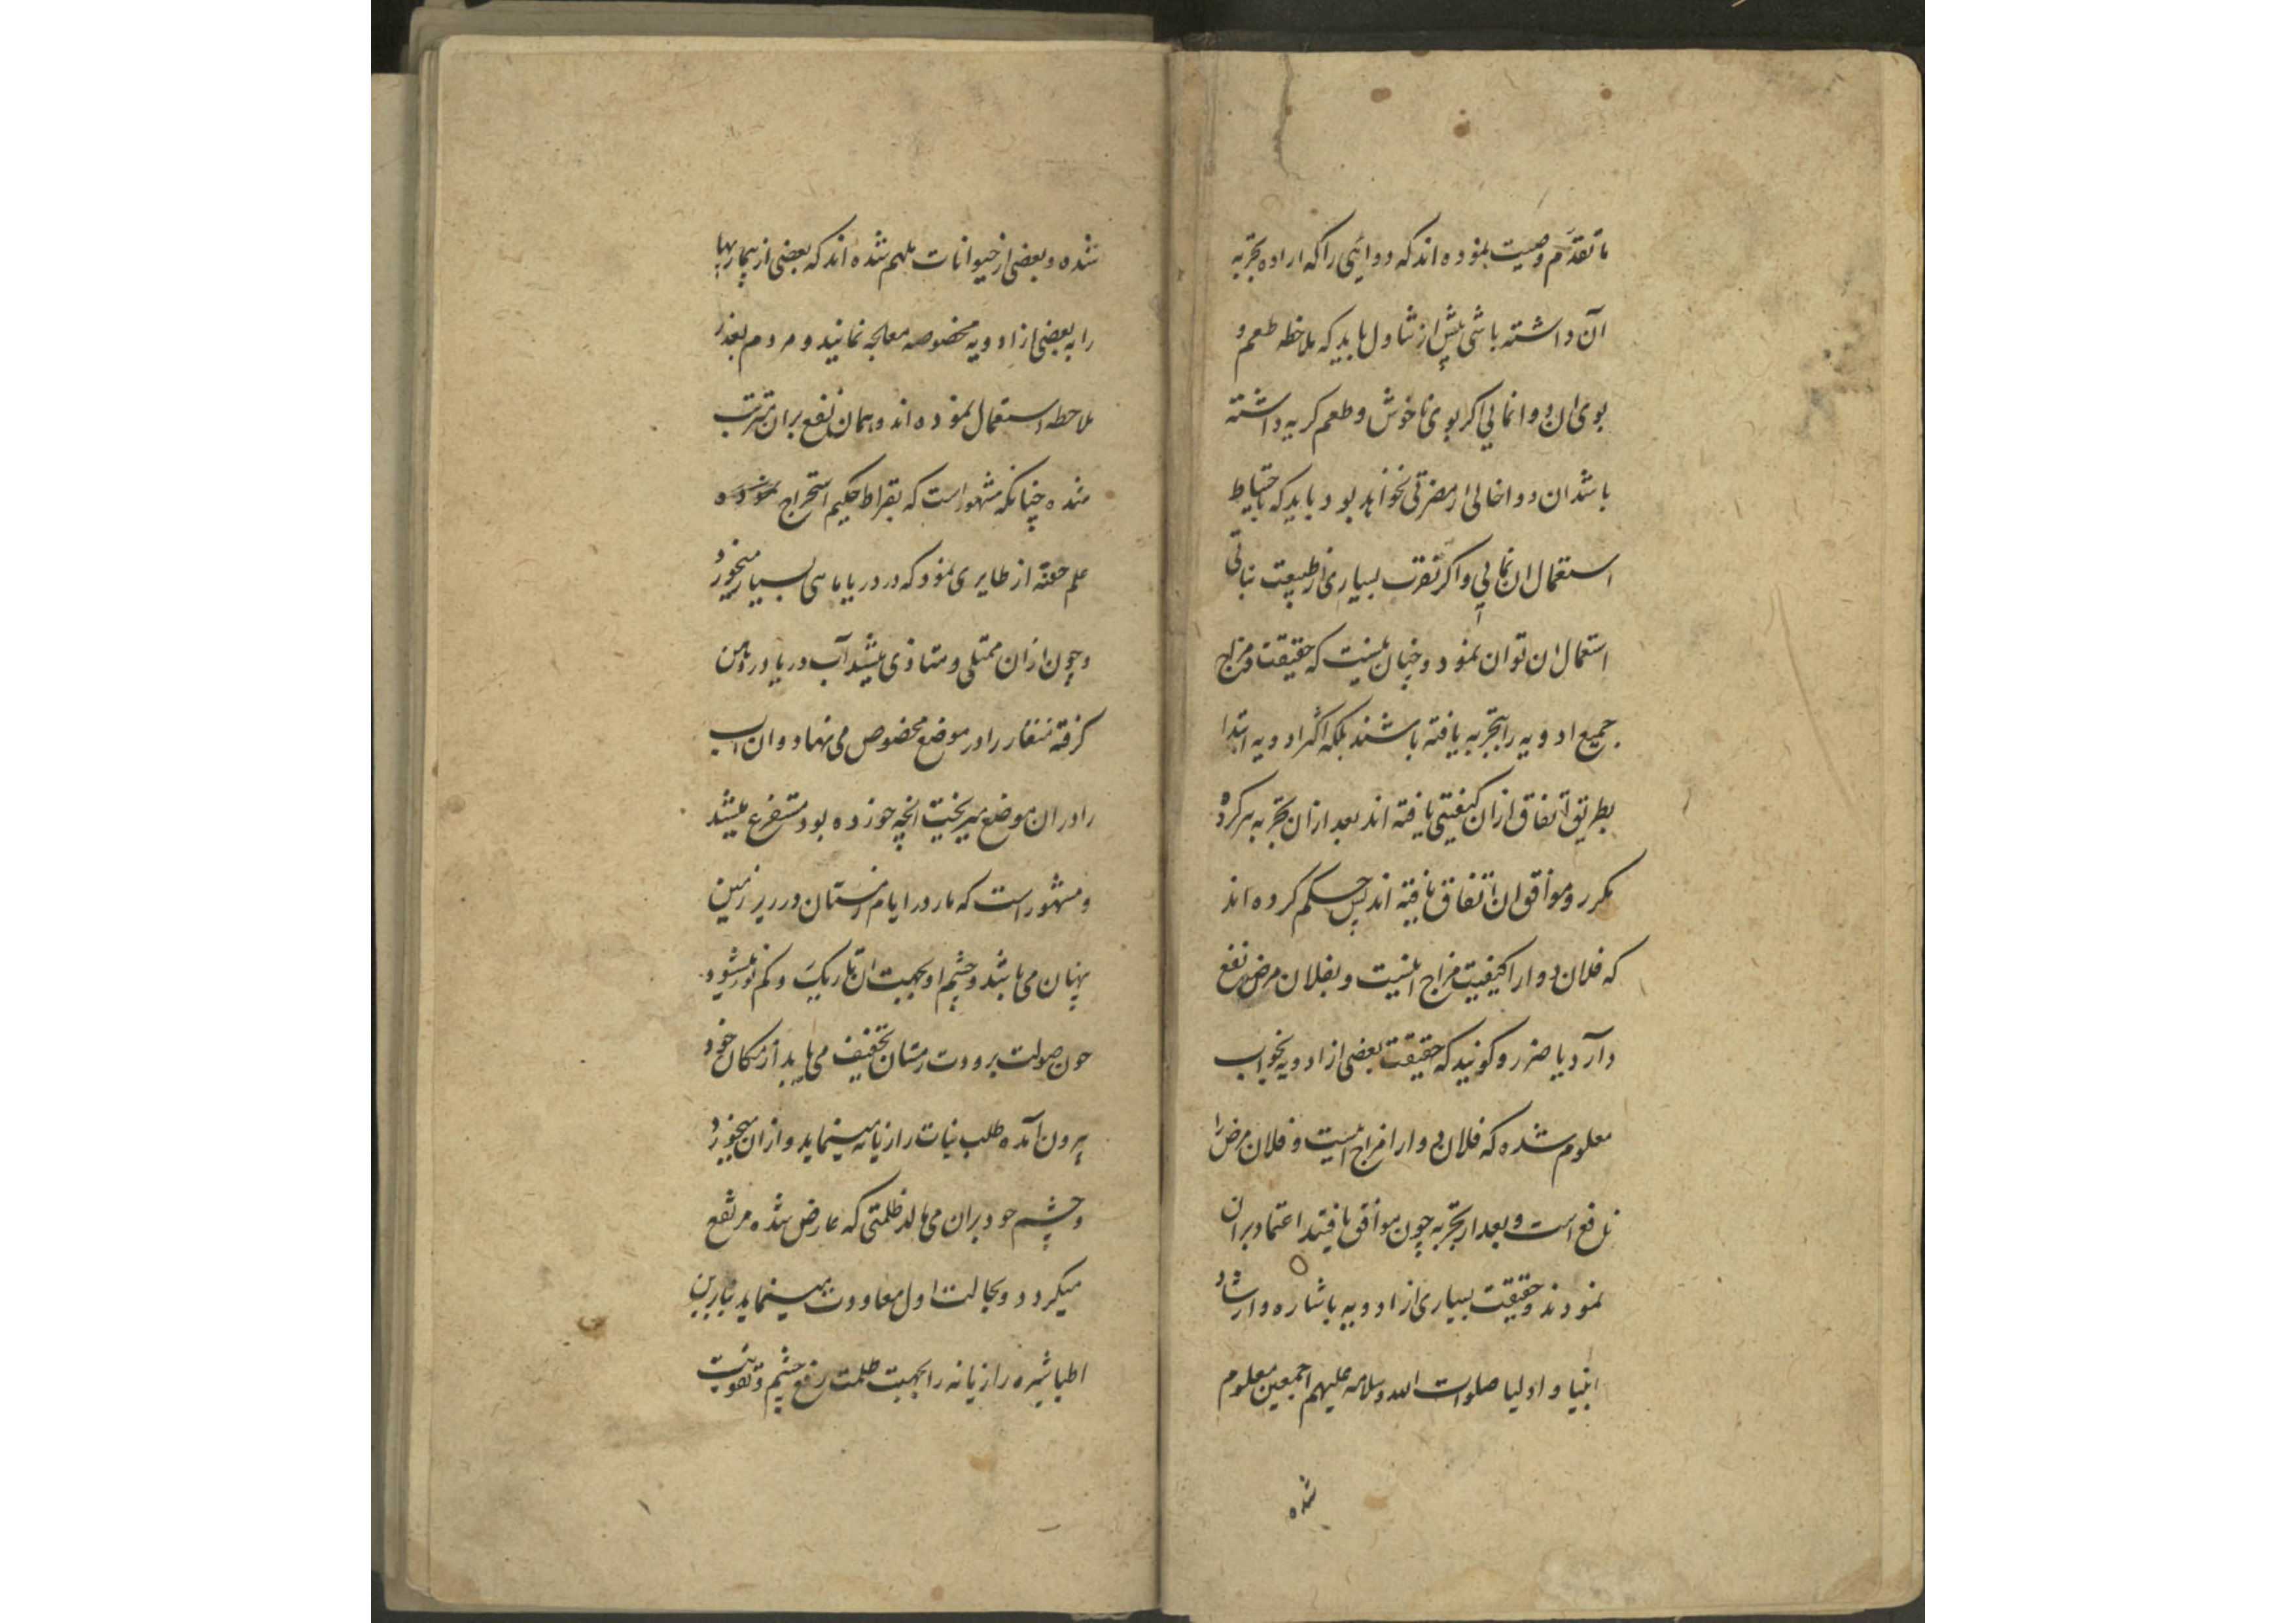 ما تقدم وصیت نموده اند که دوایی را که اراده تجربه
آن داشته باشی پیش از تناول باید که ملاحظه طعم و
بوی ان دوا نمایی اکر بوی ناخوش و طعم کریه داشته
باشد ان دوا خالی از مضرتی نخواهد بود باید که باحتیاط
استعمال ان نمایی و اکر تقرب بسیاری از طبیعت نباتی
استعمال ان توان نمود و چنان نیست که حقیقت و مزاج
جمیع ادویه را بتجربه یافته باشند بلکه اکثر ادویه ابتدا
بطریق اتفاق ازان کیفیتی یافته اند بعد ازان تجربه
مکرر و موافق ان اتفاق یافته اند پس حکم کرده اند
که فلان دوا را کیفیت مزاج اینست و بفلان مرض نفع
دارد یا ضرر و کویند که حقیقت بعضی از ادویه بخواب
معلوم شده که فلان دوا را مزاج اینست و فلان مرض را
نافع است و بعد از تجربه چون موافق یافتند اعتماد بران
نمودند و حقیقت بسیاری از ادویه باشاره و ارشاد
انبیا و اولیا صلوات الله وسلامه علیهم اجمعین معلوم
شده
شده و بعضی از حیوانات ملهم شده اند که بعضی از بیماریها
را به بعضی از ادویه مخصوصه معالجه نمایند و مردم بعد از
ملاحظه استعمال نموده اند و همان نفع بران مترتب
شده چنانکه مشهور است که بقراط حکیم استخراج نموده
علم حقنه از طایری نمود که در دریا ماهی بسیار میخورد
و چون ازان ممتلی و متاذی میشد آب دریا در دهن
کرفته منقار را در موضع مخصوص می نهاد و ان اب
را در ان موضع میریخت انچه خورده بود مستفرغ میشد
و مشهور است که مار در ایام زمستان در زیر زمین
پنهان می باشد و چشم او بجهت ان تاریک و کم نور میشود
چون صولت برودت زمستان تخفیف می یابد از مکان خود
بیرون آمده طلب نبات رازیانه مینماید و ازان میخورد
و چشم خود بران می مالد ظلمتی که عارض شده مرتفع
میکردد و بحالت اول معاودت مینماید بنابرین
اطبا شیره رازیانه را بجهت ظلمت رفع چشم و تقویت